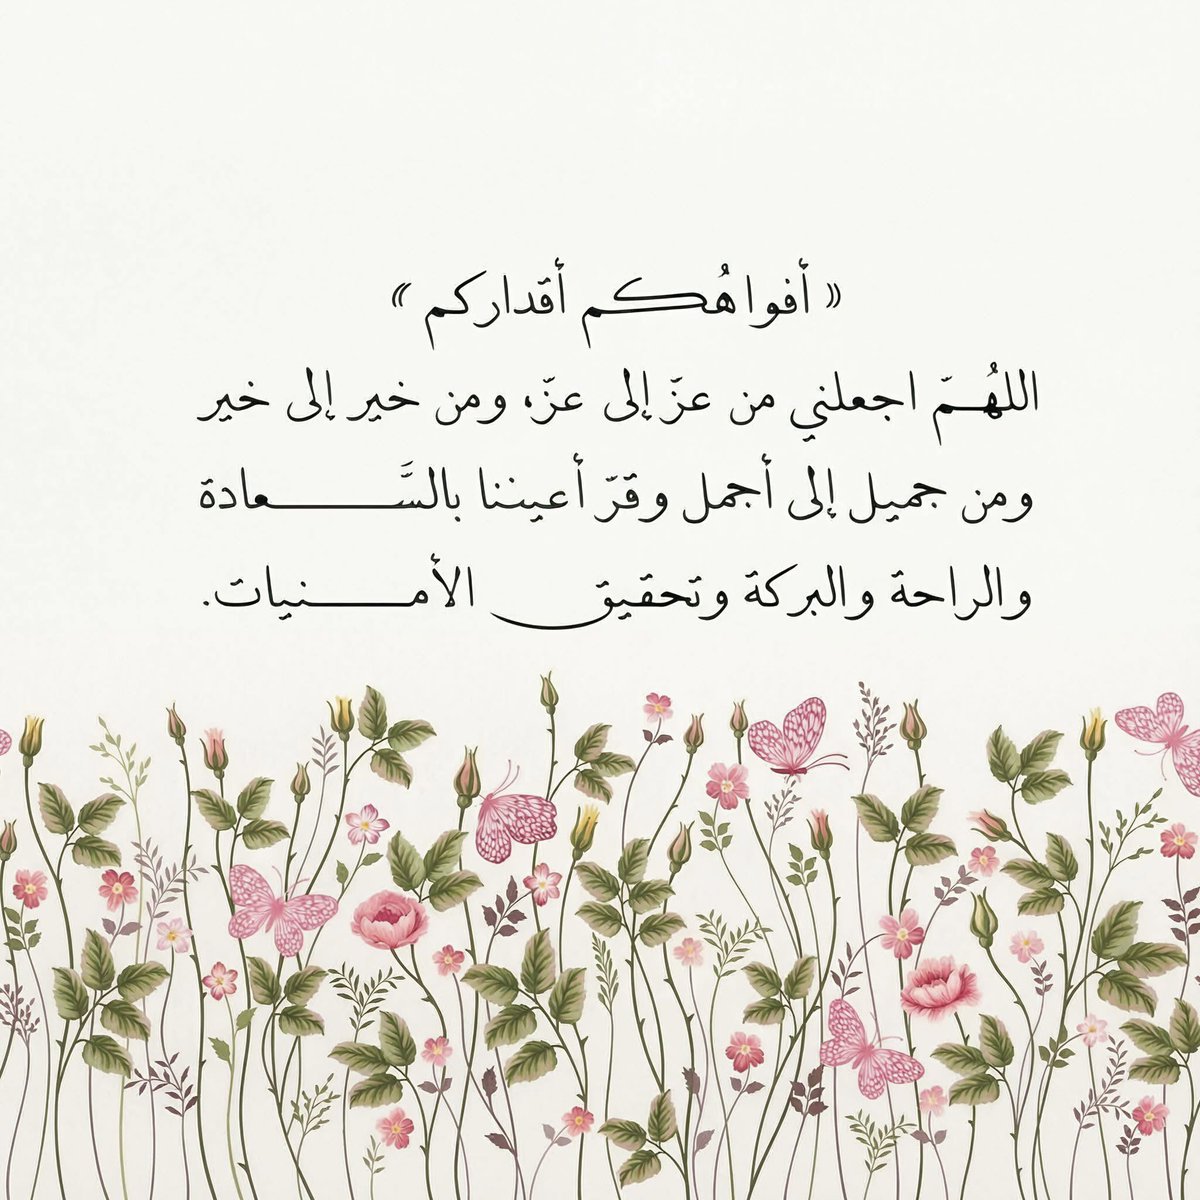 « أفواهُكم أقداركم »
اللهُمّ اجعلني من عزّ إلى عزّ، ومن خير إلى خير
ومن جميل إلى أجمل وقرّ أعيننا بالسَّعادة
والراحة والبركة وتحقيق الأمنيات.